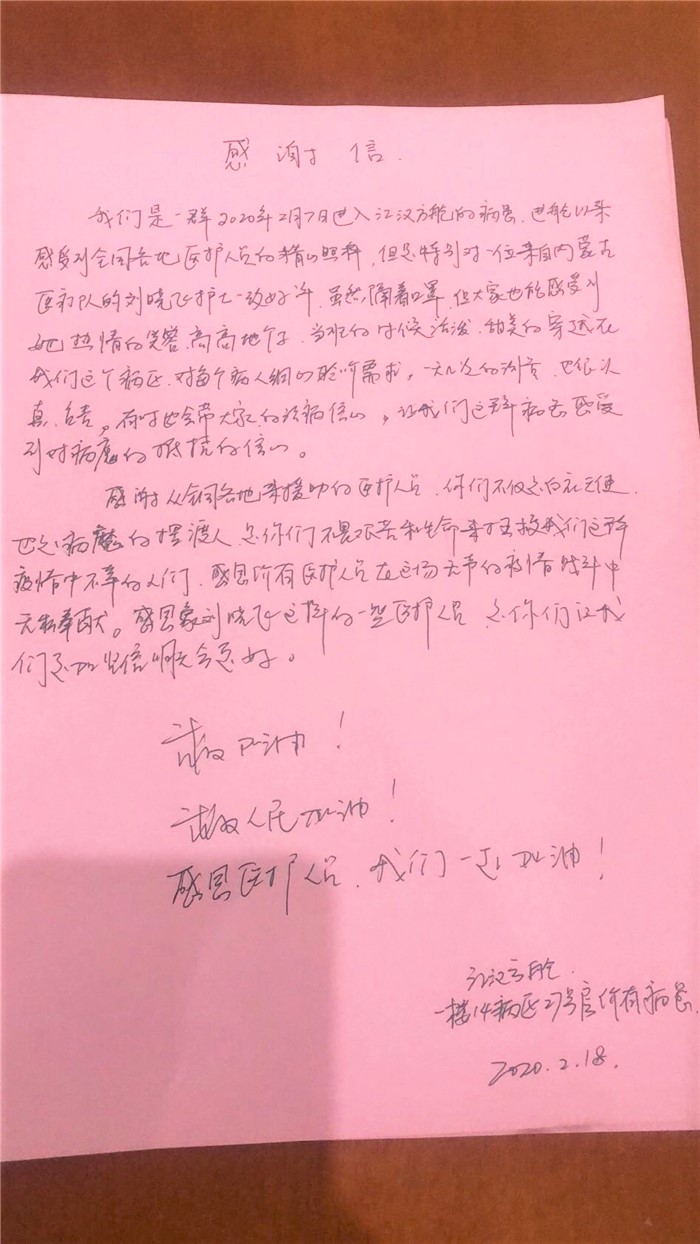 感谢信.
我们是一群2020年2月7日进入江汉方舱的病员，进舱以来
感受到全国各地医护人员的精心照料，但是特别对一位来自内蒙古
医疗队的刘晓飞护士一致好评，虽然隔着口罩，但大家也能感受到
她热情的笑容，高高地个子，当班的时候活泼、甜美的穿越在
我们这个病区，对每个病人细心聆听需求，一天几次的测量，也很认
真、负责。有时也会带大家的治病信心，让我们这群病员感受
到对病魔的抵抗的信心。
感谢从全国各地来援助的医护人员，你们不仅是白衣天使，
也是病魔的摆渡人，是你们不畏艰苦和生命来拯救我们这群
疫情中不幸的人们，感恩所有医护人员在这场无声的疫情战斗中
无私奉献。感恩象刘晓飞这样的一些医护人员，是你们让我
们更加坚信明天会更好。
武汉加油！
武汉人民加油！
感恩医护人员，我们一起加油！
江汉方舱.
一楼14病区27号房所有病员.
2020.2.18.